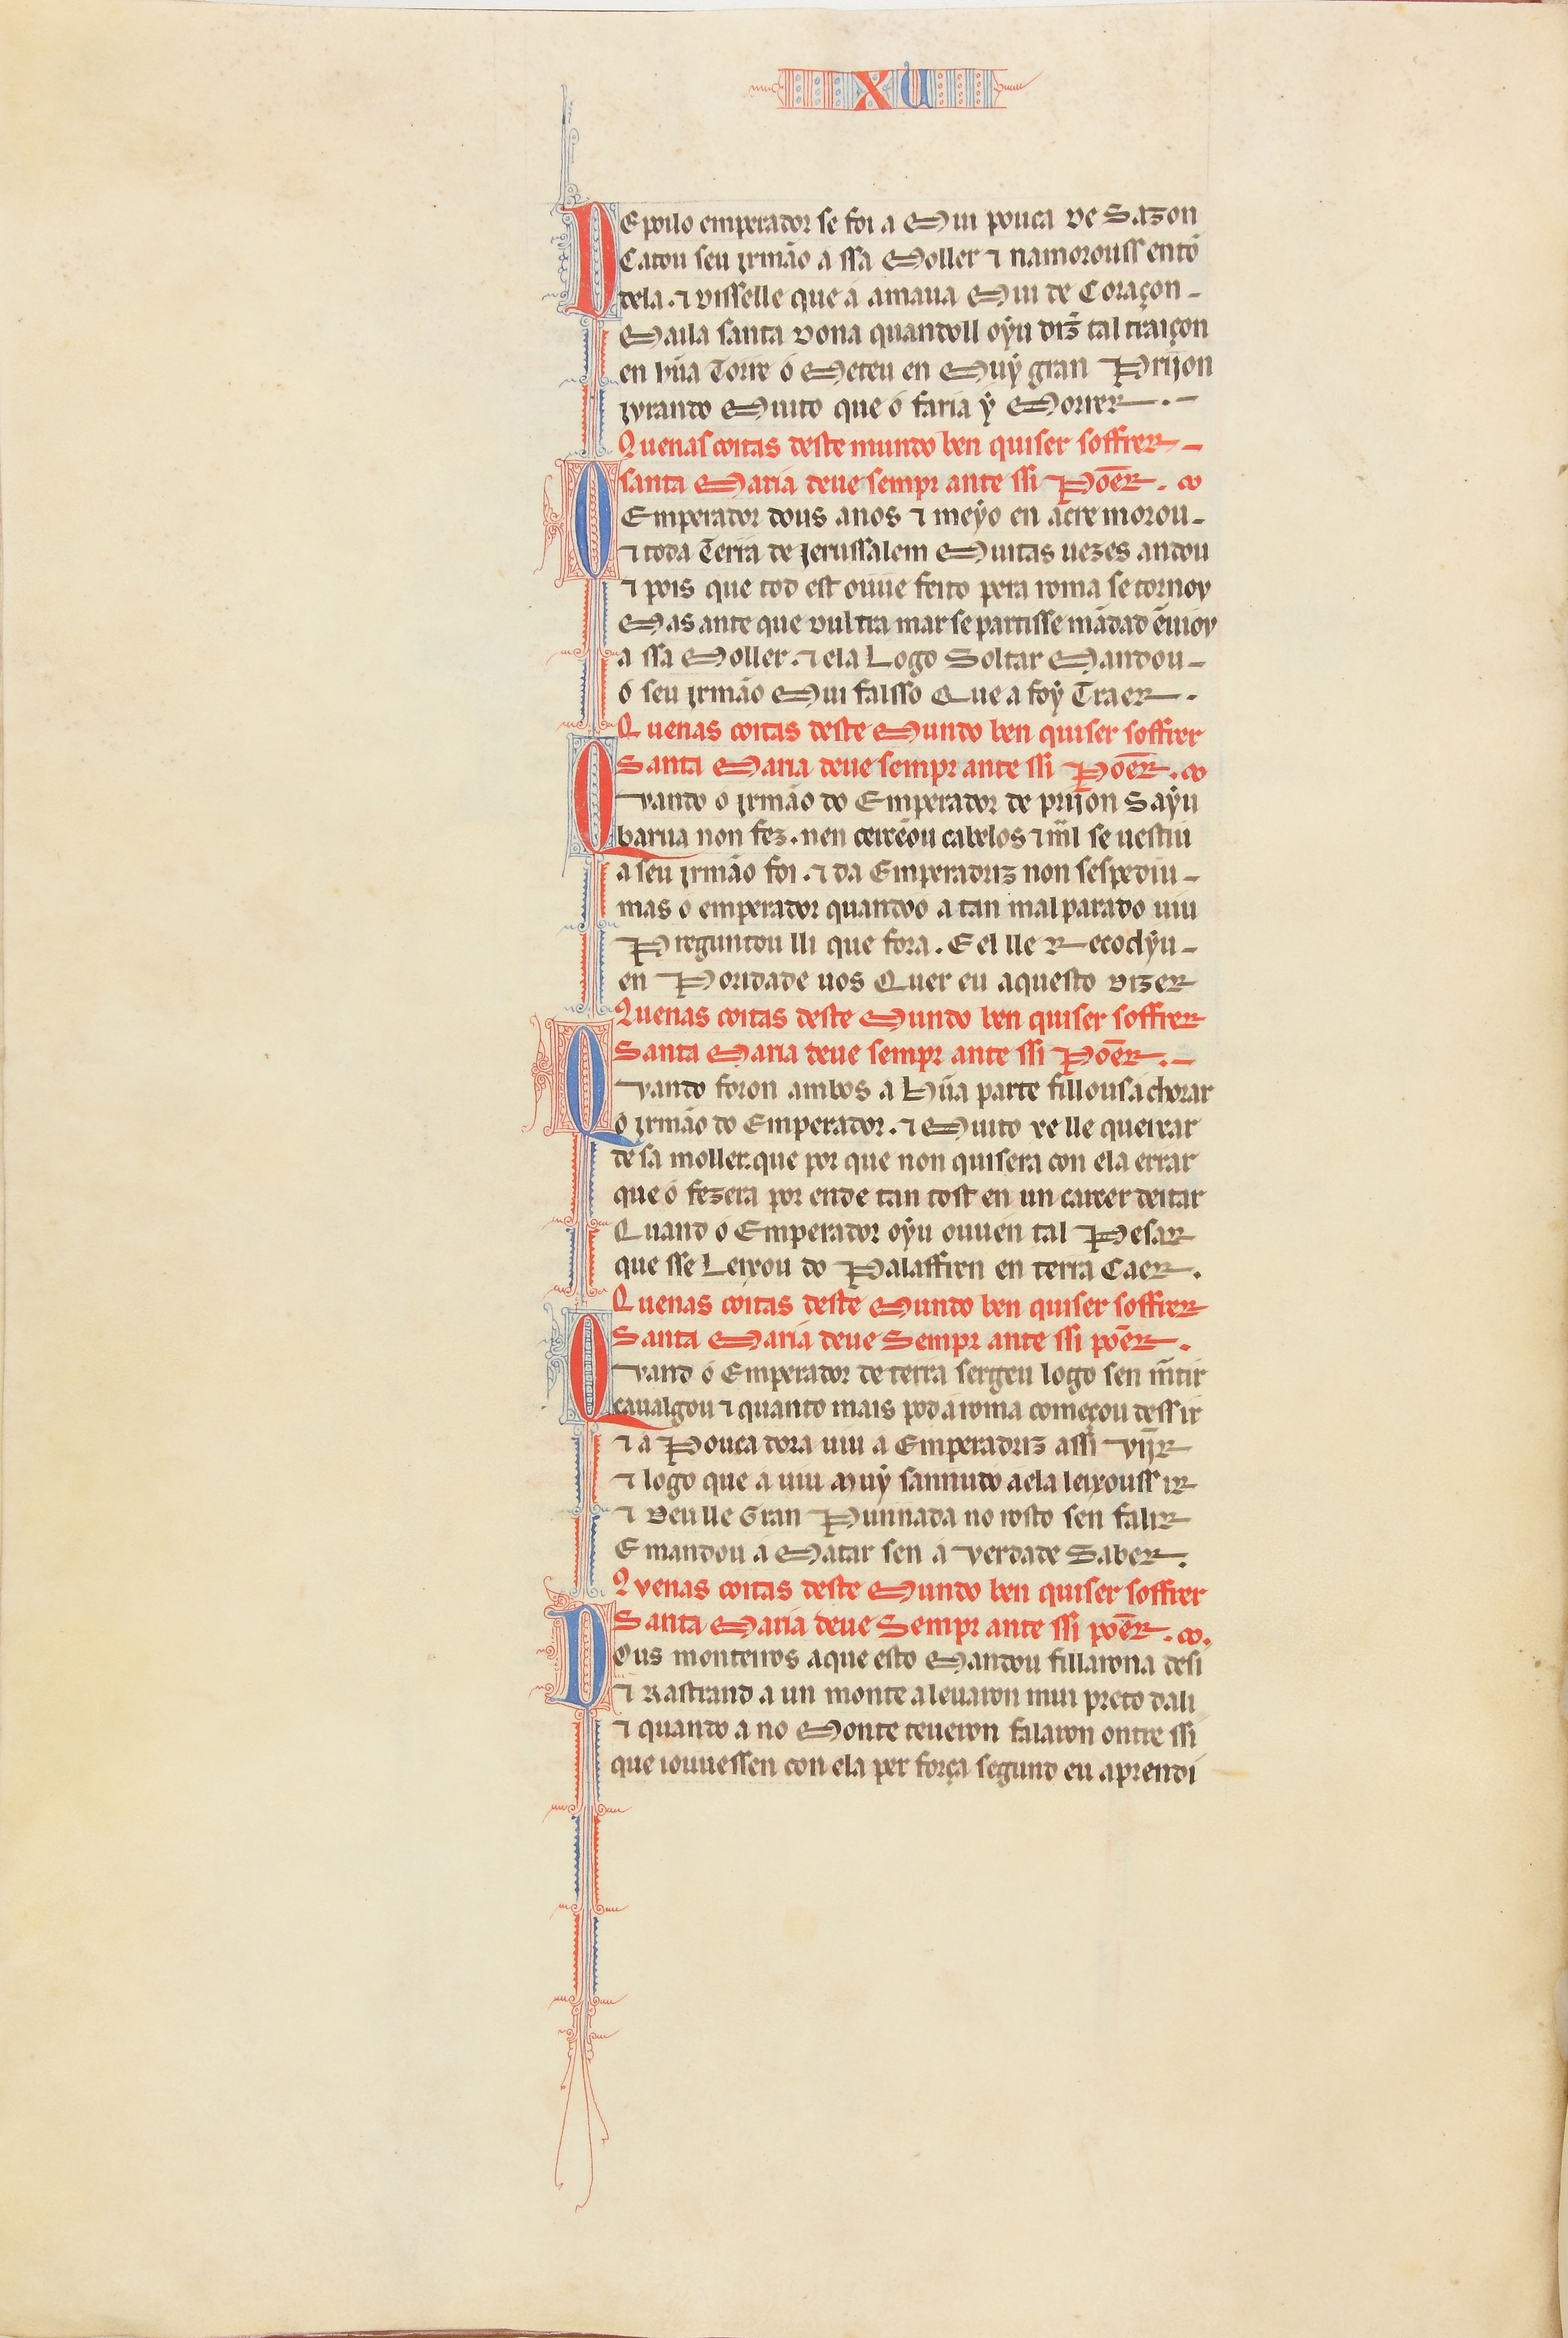 XV
De poilo emperador se foi a Mui pouca de Sazon
Catou seu yrmão a ssa Moller ⁊ namorouss entõ
dela. ⁊ disselle que á amaua Mui de Coraçon-
Maila santa dona quandoll oyu diz̃ tal traiçon
en hũa Torre ó Meteu en Muy gran Prijon
iurando Muito que ó faria y Morrer.-
Quenas coitas deste mundo ben quiser soffrer-
santa Maria deue sempr ante ssi Põer.
O Emperador dous anos ⁊ meyo en acre morou-
⁊ toda Terra de Jerussalem Muitas uezes andou
⁊ pois que tod est ouue feito pera roma se tornou
Mas ante que dultra mar se partisse mãdad ẽuiou
a ssa Moller. ⁊ ela Logo Soltar Mandou-
ó seu yrmão Mui falsso Que a foy Traer.
Quenas coitas deste Mundo ben quiser soffrer
Santa Maria deue sempr ante ssi Põer.
Quando ó yrmão do Emperador de prijon Sayu
barua non fez. nen cercẽou cabelos ⁊ m̃l se uestiu
a seu yrmão foi. ⁊ da Emperadriz non sespediu-
mas o emperador quandoo a tan mal parado uiu
Preguntou lli que fora. E el lle Recodyu-
en Poridade uos Quer eu aquesto dizer
Quenas coitas deste Mundo ben quiser soffrer
Santa Maria deue sempr ante ssi Põer.-
Quando foron ambos a hũa parte fillousa chorar
o yrmão do Emperador. ⁊ Muito xe lle queixar
de sa moller. que por que non quisera con ela errar
que ó fezera por ende tan tost en un carcer deitar
Quand ó Emperador oyu ouuen tal Pesar
que sse Leixou do Palaffren en terra Caer.
Quenas coitas deste Mundo ben quiser soffrer
Santa Maria deue Sempr ante ssi põer.
Quand ó Emperador de terra sergeu logo sen m̃tir
caualgou ⁊ quanto mais pod a roma começou dess ir
⁊ a Pouca dora uiu a Emperadriz assi vĩjr
⁊ logo que a uiu Muy sannudo a ela leixouss ir
⁊ deu lle Gran Punnada no rosto sen falir
E mandou á Matar sen á verdade Saber.
Quenas coitas deste Mundo ben quiser soffrer
Santa Maria deue Sempr ante ssi põer.
Dous monteiros a que esto Mandou fillarona desi
⁊ Rastrand a un monte a leuaron mui preto dali
⁊ quando a no Monte teueron falaron ontre ssi
que iouuessen con ela per força segund eu aprendi